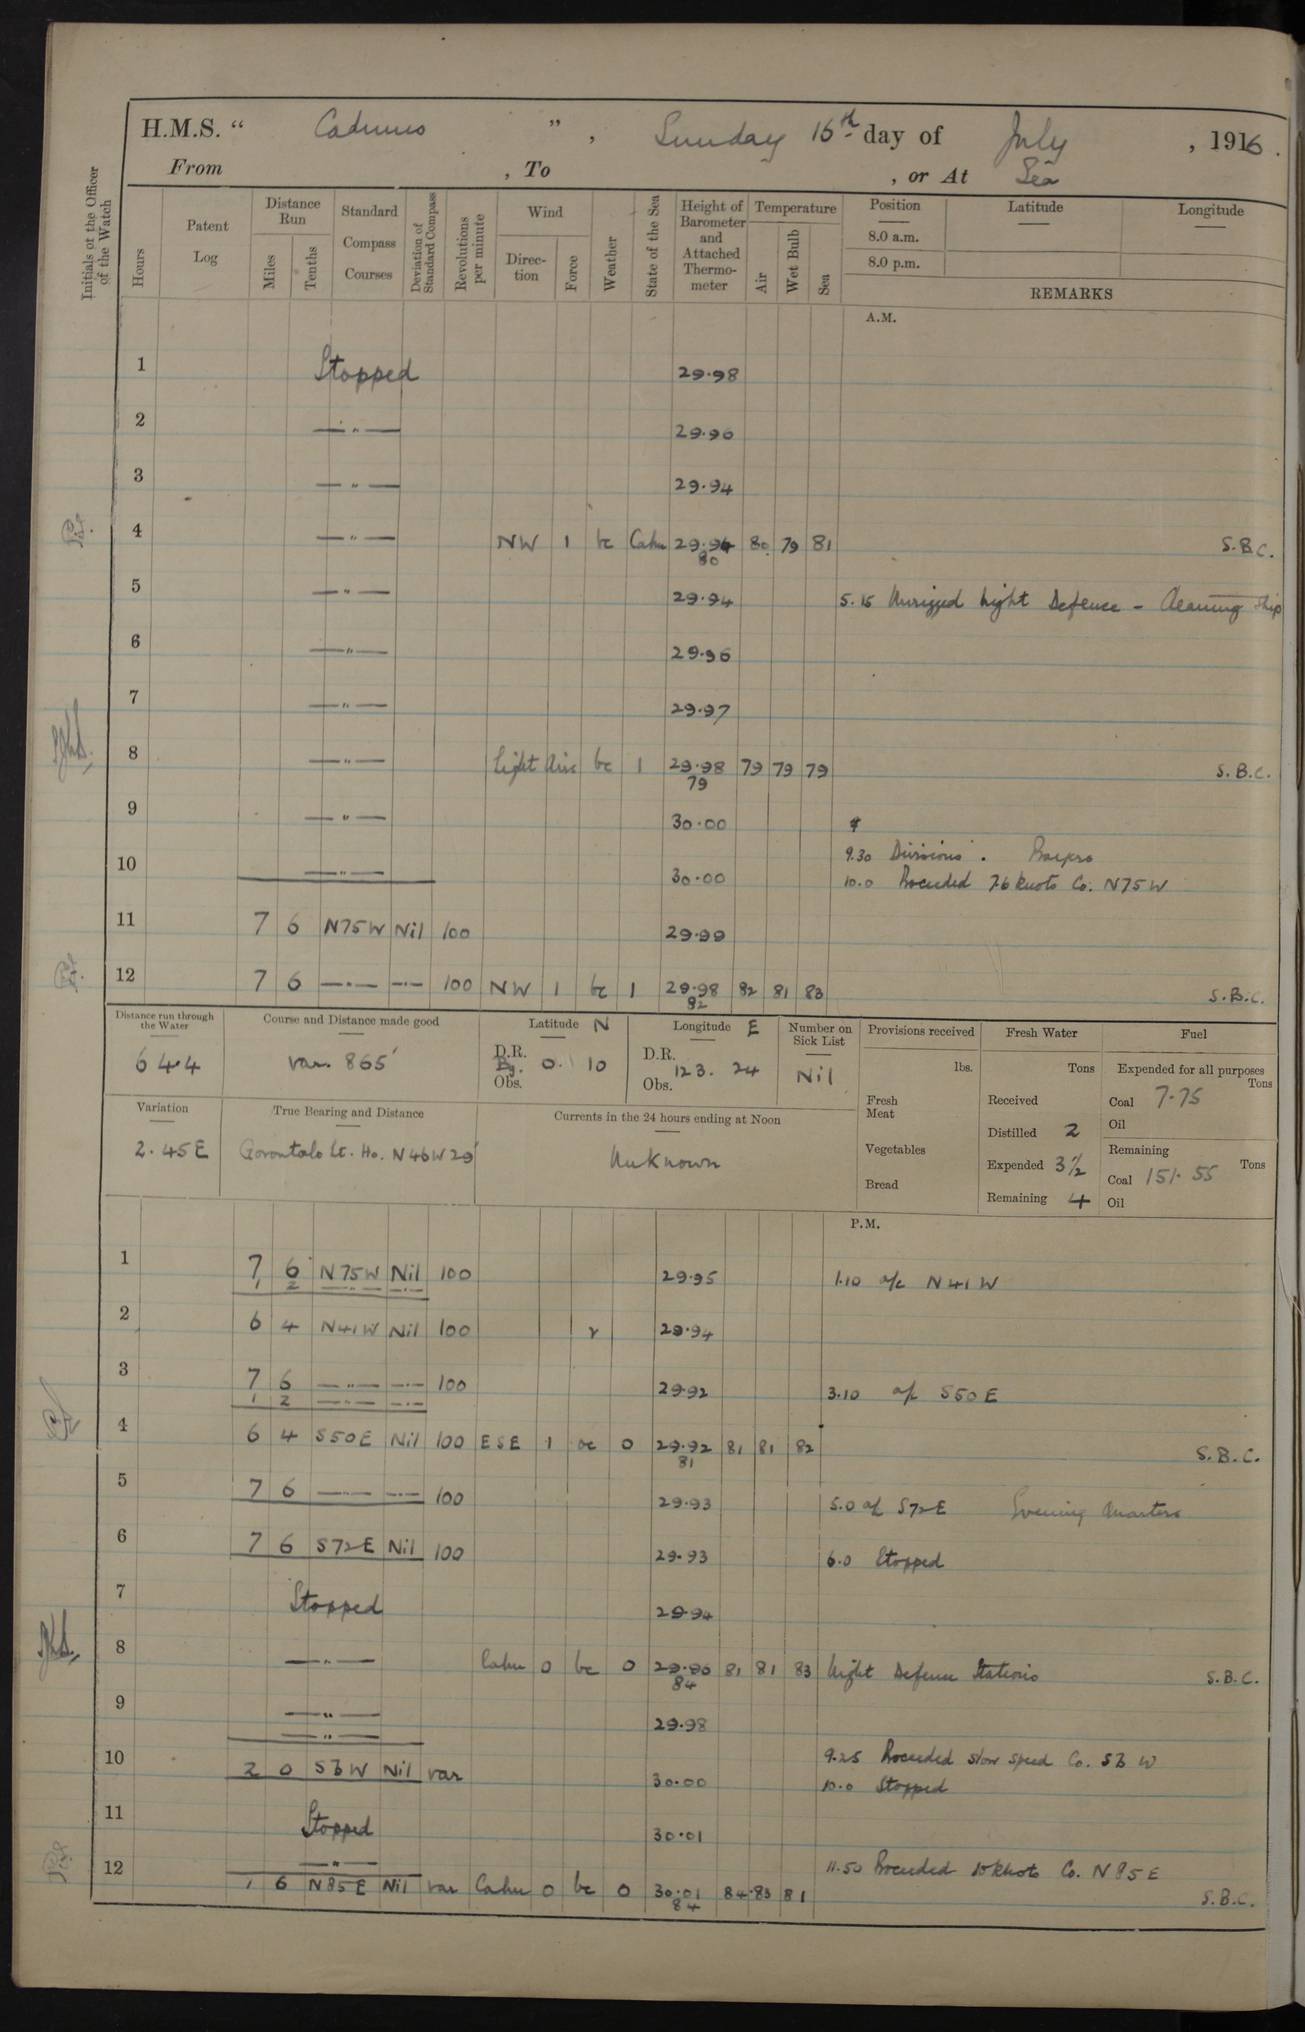 H.M.S. “ Cadmus ” , Sunday 16th day of July , 1916 .
From , To , or At Sea
Initials of the Officer of the Watch
Hours
Patent Log
Distance Run
Miles
Tenths
Standard Compass Courses
Deviation of Standard Compass
Revolutions per minute
Wind
Direction
Force
Weather
State of the Sea
Height of Barometer and Attached Thermometer
Temperature
Air
Wet Bulb
Sea
Position Latitude Longitude
8.0 a.m.
8.0 p.m.
REMARKS
A.M.
1 Stopped 29.98
2 — " — 29.96
3 — " — 29.94
4 — " — NW 1 bc Calm 29.94 80 79 81 S.B.C.
80
5 — " — 29.94 5.15 Unrigged Night Defence - Cleaning Ship
6 — " — 29.96
7 — " — 29.97
8 — " — Light Airs bc 1 29.98 79 79 79 S.B.C.
79
9 — " — 30.00
9.30 Divisions . Prayers
10 — " — 30.00 10.0 Proceeded 7.6 knots Co. N75W
11 7 6 N75W Nil 100 29.99
12 7 6 — " — — " — 100 NW 1 bc 1 29.98 82 81 83 S.B.C.
82
Distance run through the Water
64.4
Course and Distance made good
var. 865'
Latitude N
D.R.
By. 0. 10
Obs.
Longitude E
D.R.
123. 24
Obs.
Number on Sick List
Nil
Provisions received
lbs.
Fresh Meat
Vegetables
Bread
Fresh Water
Tons
Received
Distilled 2
Expended 3½
Remaining 4
Fuel
Expended for all purposes
Tons
Coal 7.75
Oil
Remaining
Tons
Coal 151.55
Oil
Variation
2.45E
True Bearing and Distance
Gorontalo Lt. Ho. N46W 29'
Currents in the 24 hours ending at Noon
Unknown
P.M.
1 7 6 N75W Nil 100 29.95 1.10 a/c N41W
1 2 — " — — " —
2 6 4 N41W Nil 100 29.94
3 7 6 — " — — " — 100 29.92 3.10 a/c S50E
1 2 — " — — " —
4 6 4 S50E Nil 100 ESE 1 bc 0 29.92 81 81 82 S.B.C.
81
5 7 6 — " — — " — 100 29.93 5.0 a/c S72E Evening Quarters
6 7 6 S72E Nil 100 29.93 6.0 Stopped
7 Stopped 29.94
8 — " — Calm 0 bc 0 29.96 81 81 83 Night Defence Stations S.B.C.
84
9 — " — 29.98
— " —
9.25 Proceeded slow speed Co. S3W
10 2 0 S3W Nil var 30.00 10.0 Stopped
11 Stopped 30.01
— " — 11.50 Proceeded 10 knots Co. N85E
12 1 6 N85E Nil var Calm 0 bc 0 30.01 84 83 81 S.B.C.
84